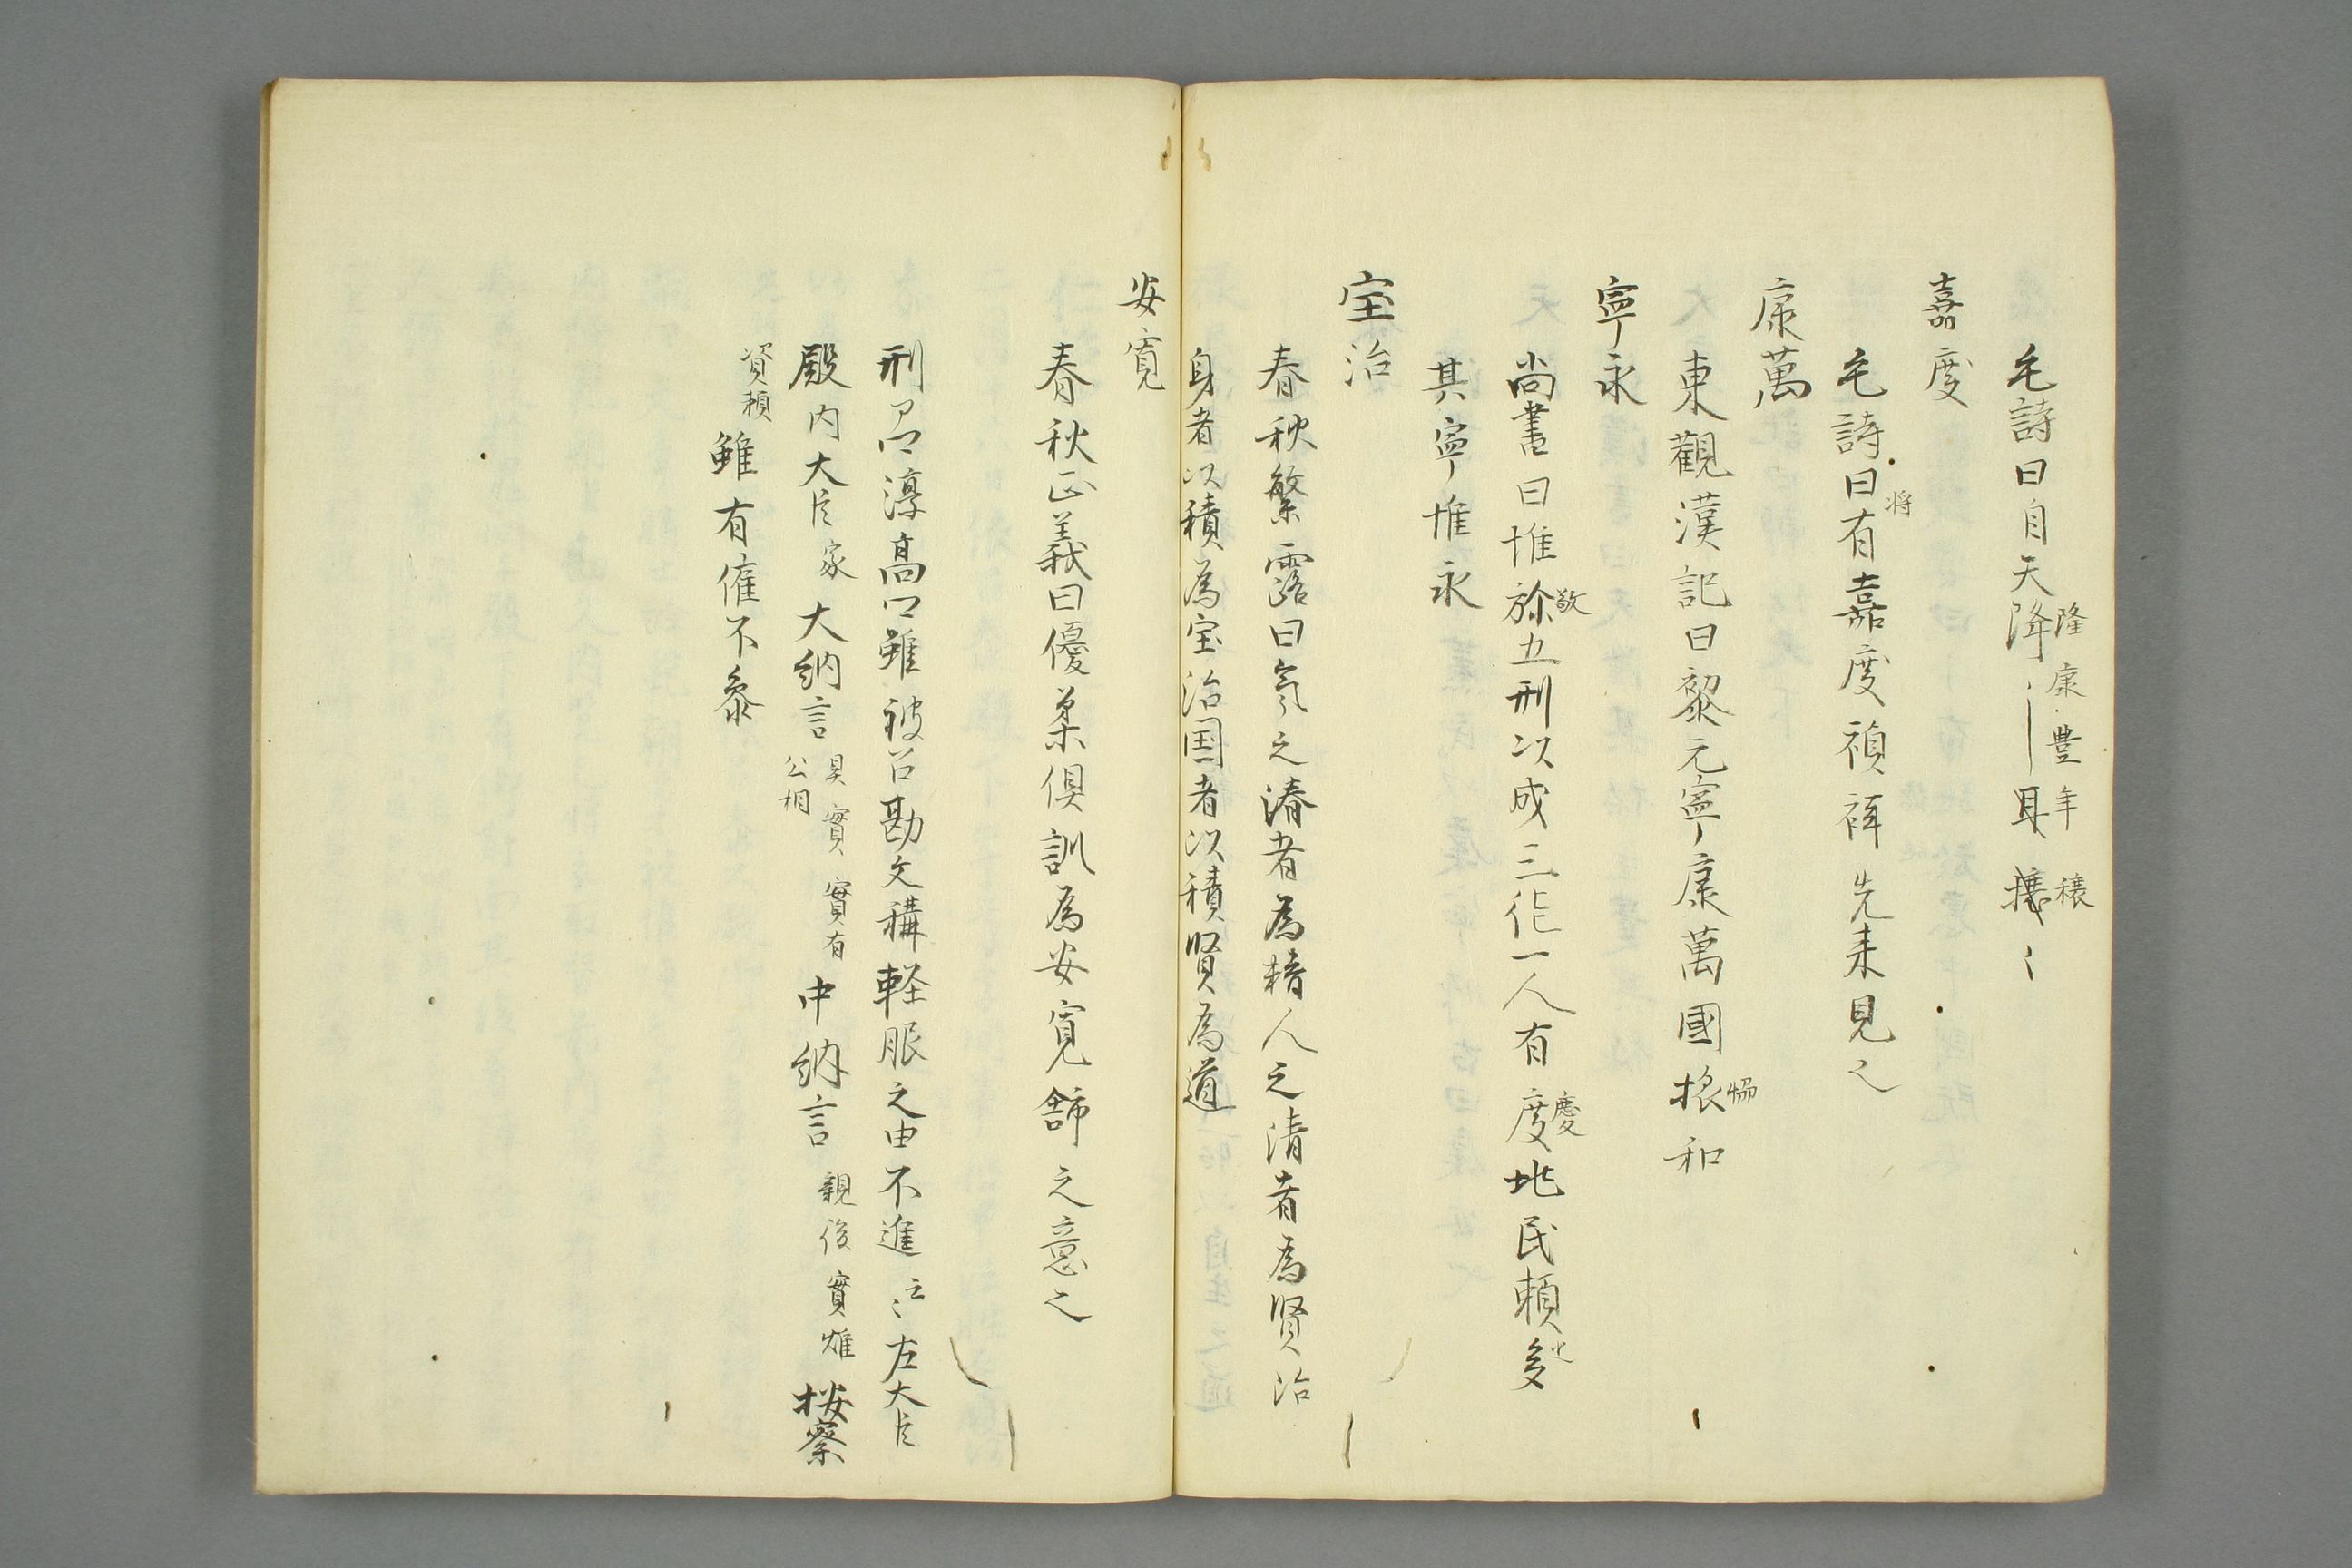 毛詩曰自天降
隆康豊年穣
嘉度
毛詩曰有嘉度禎祥先来見之
将
康萬
東觀漢記曰黎元寧康萬國和
協
寧永
尚書曰惟五刑以成三一人有度民頼
敬
慶
其寧惟永
宝治
春秋繁露曰氣之清者為精人之清者為賢治
身者以積為宝治国者以積賢為道
安寛
春秋正義曰優柔倶訓為安寛舒之意之
刑淳高雖被召勘文構軽服之由不進云々左大臣
殿内大臣家大納言具實實有公相中納言親俊實雄按察
資頼雖有催不参